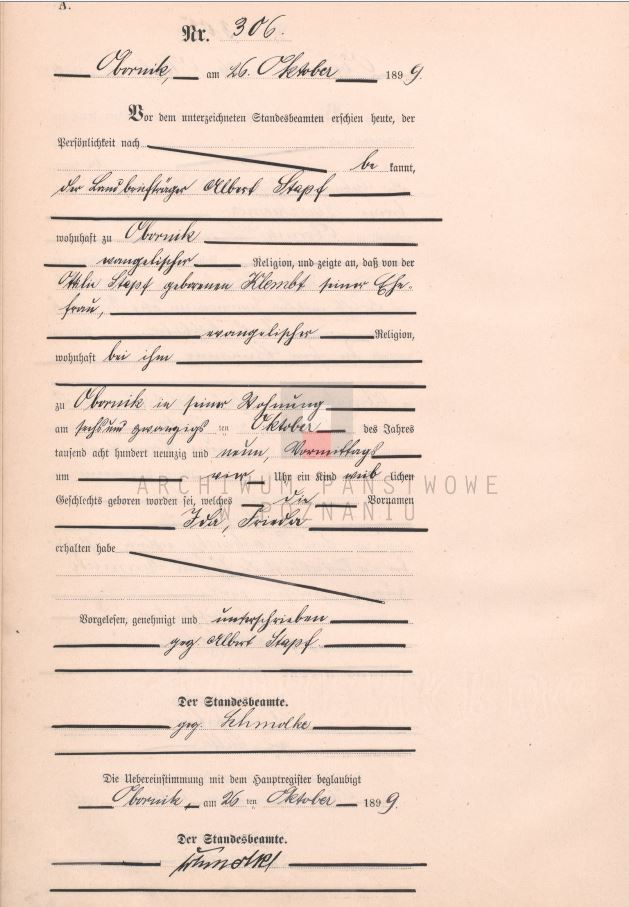 A.
Nr. 306.
Obornik, am 26. Oktober 1899.
Vor dem unterzeichneten Standesbeamten erschien heute, der
Persönlichkeit nach
be kannt,
der Landbriefträger Albert Stapf
wohnhaft zu Obornik
evangelischer Religion, und zeigte an, daß von der
Stapf geborenen Klembt seiner Ehe-
frau,
evangelischer Religion,
wohnhaft bei ihm
zu Obornik in seiner Wohnung
am sechsundzwanzigs ten Oktober des Jahres
tausend acht hundert neunzig und neun, Vormittags
um vier Uhr ein Kind weib lichen
Geschlechts geboren worden sei, welches die Vornamen
Ida, Frieda
erhalten habe
Vorgelesen, genehmigt und unterschrieben
gez. Albert Stapf.
Der Standesbeamte.
gez. Schmolke
Die Uebereinstimmung mit dem Hauptregister beglaubigt
Obornik, am 26 ten Oktober 1899.
Der Standesbeamte.
Schmolke
ARCHIWUM PAŃSTWOWE
W POZNANIU